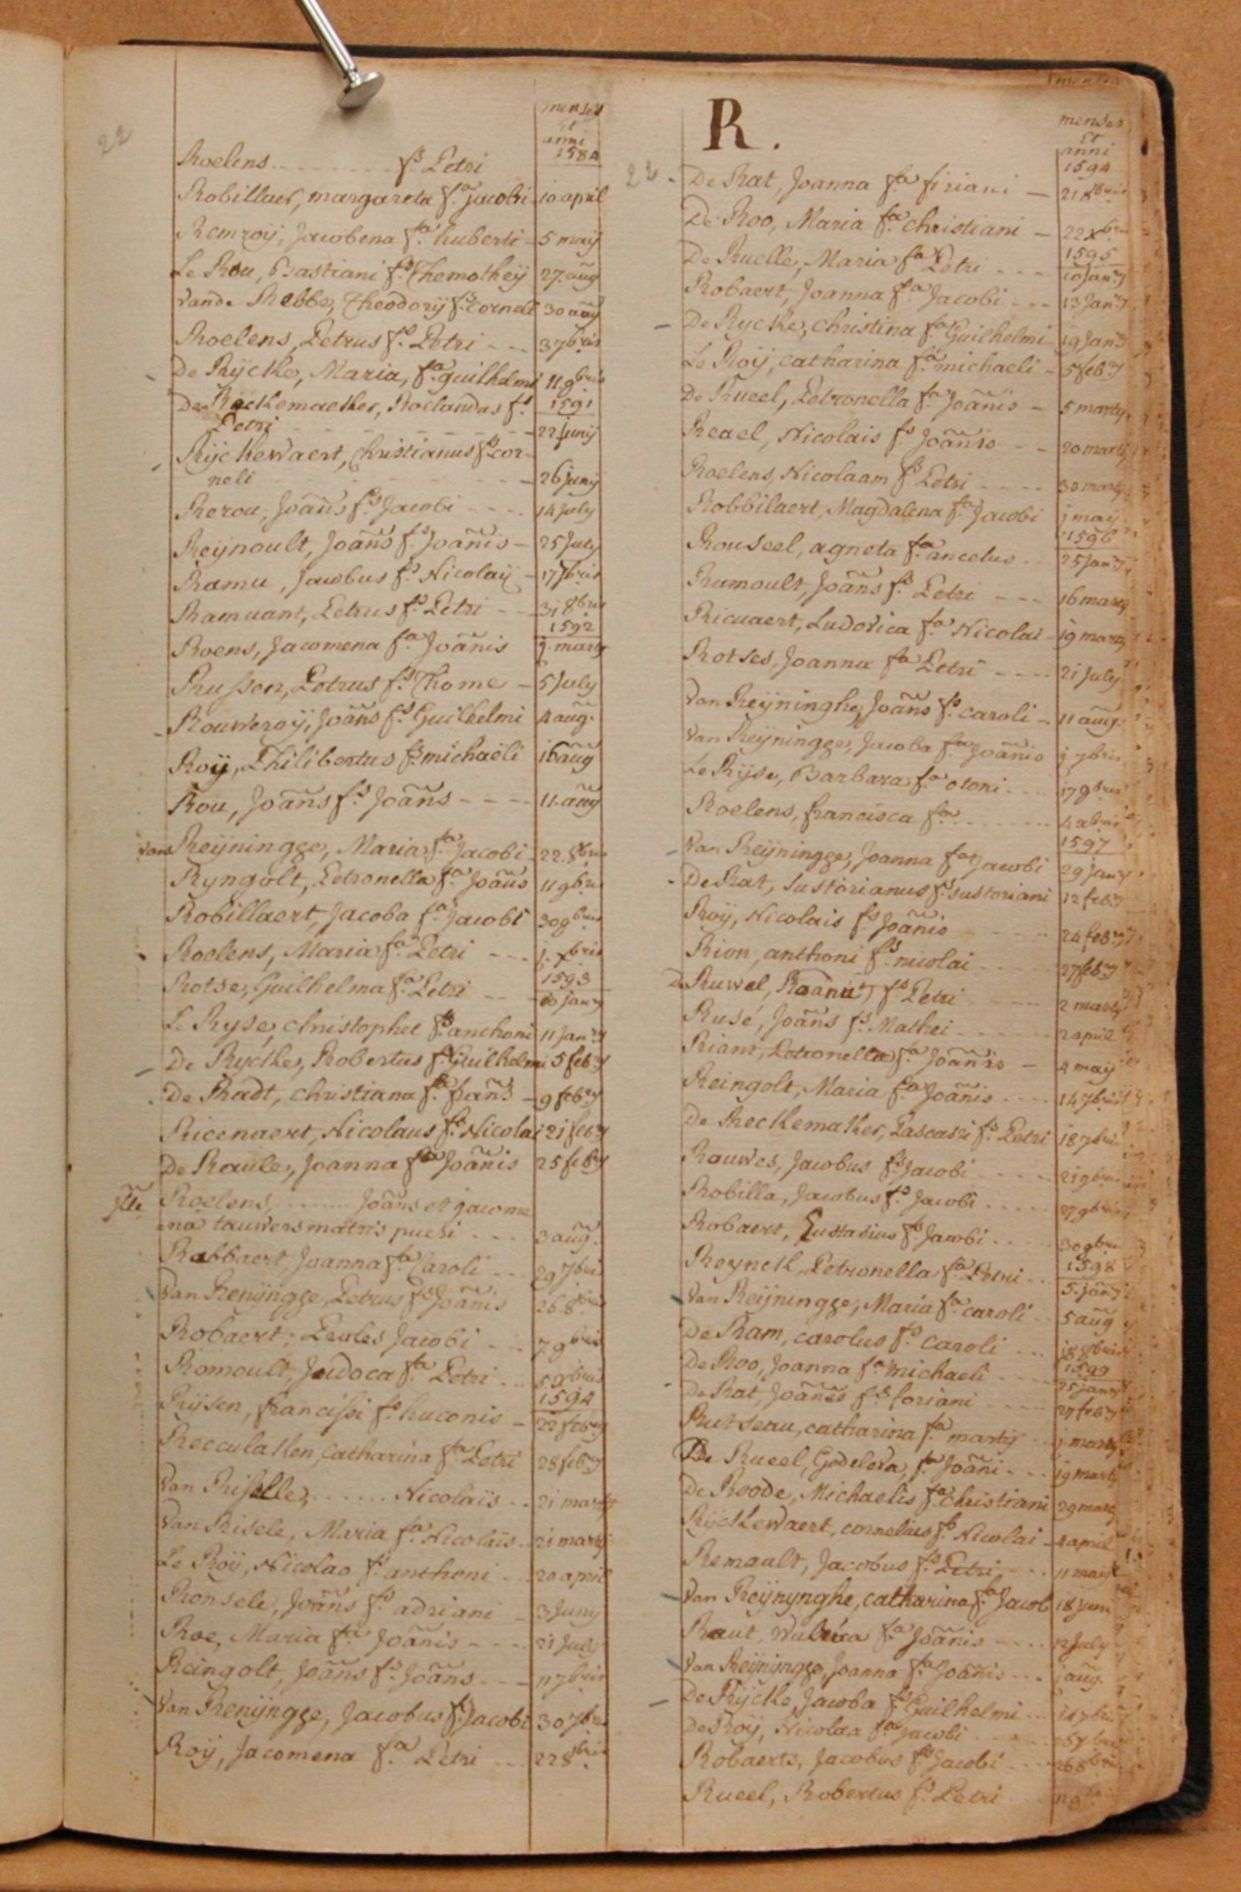 22
menses
et
anni
1584
Roelens fs Petri
Robillaer, margareta fa Jacobi 10 april
Remroy, Jacobena fa huberti 5 maij
Le Rou, Bastiani fs Themothey 27 aug
Vande Rebbe, Theodorij fs Corneli 30 aug
Roelens, Petrus fs Petri 3 7bris
De Rijcke, Maria, fa guilhelmi 11 9bris
De Reckemaeker, Rolandus fs 1591
Petri 22 junij
Rijckewaert, Christianus fs cor-
neli 26 juny
Rerou, Joans fs Jacobi 14 july
Reijnoult, Joans fs Joanis 25 July
Ramu, Jacobus fs Nicolaij 17 7bris
Ramuant, Petrus fs Petri 31 8bris
1592
Roens, Jacomena fa Joanis j marty
Russon, Petrus fs Thome 5 July
Rouweroij, Joans fs Guilhelmi 4 aug.
Roij, Philibertus fs michaeli 16 aug
Rou, Joans fs Joans 11 aug
van Reijningge, Maria fa Jacobi 22 8bris
Ryngolt, Petronella fa Joans 11 9bris
Robillaert, Jacoba fa Jacobi 30 9bris
Roelens, Maria fa Petri j xbris
1593
Rotse, Guilhelma fa Petri 10 jany
Le Ryse, christopher fs anthoni 11 jany
De Rycke, Robertus fs Guilhelmi 5 feby
De Radt, christiana fa frans 9 feby
Ricenaert, Nicolaus fs Nicolai 21 feby
De Raule, Joanna fa Joanis 25 feby
Roelens, Joans et jacome
na tauwers matris pueri 3 aug.
Rabbaert Joanna fa Caroli 29 7bris
Van Renijngge, Petrus fs Joanis 26 8bris
Robaert, Jacobi 7 9bris
Romoult, Judoca fa Petri 5 9bris
1594
Rijsen, francissi fs huconis 22 feby
Recculaken, Catharina fa Petri 28 feby
Van Risselle, Nicolais 21 marty
Van Risele, Maria fa Nicolais 21 marty
Le Roij, Nicolao fs anthoni 20 april
Ronsele, Joans fs adriani 3 Juny
Roe, Maria fa Joanis 21 July
Reingolt, Joans fs Joans 11 7bris
Van Renijngge, Jacobus fs Jacobi 30 7bris
Roij, Jacomena fa Petri 22 8bris
R.
menses
et
anni
1594
22
De Rat, Joanna fa firiani 21 8bris
De Roo, Maria fa christiani 22 xbris
1595
De Ruelle, Maria fa Petri 10 jany
Robaert, Joanna fa Jacobi 13 jany
De Rycke, Christina fa Guilhelmi 19 jany
Le Roij, catharina fa michaeli 5 feby
De Rueel, Petronella fa Joanis 5 marty
Reael, Nicolais fs Joanis 20 marty
Roelens, Nicolaam fs Petri 30 marty
Robbilaert, Magdalena fa Jacobi j may
1596
Rouseel, agneta fa ancelus 25 jany
Ramoult, Joans fs Petri 16 marty
Ricuaert, Ludovica fa Nicolai 19 marty
Rotses, Joanna fa Petri 21 July
Van Reijninghe, Joans fs caroli 11 aug.
Van Reijningge, Jacoba fa Joanis j 7bris
Le Rijse, Barbara fa otoni 17 9bris
Roelens, francisca fa 4 xbris
1597
Van Reijningge, Joanna fa Jacobi 29 jany
De Rat, sustorianus fs sustoriani 12 feby
Roij, Nicolais fs Joanis 24 feby
Rion, anthoni fs nicolai 27 feby
Ruwel, fs Petri 2 marty
Rusé, Joans fs Mathei 2 april
Riant, Petronella fa Joanis 4 may
Reingolt, Maria fa Joanis 14 7bris
De Reckemaker, Pascasi fs Petri 18 7bris
Rouwes, Jacobus fs Jacobi 21 9bris
Robilla, Jacobus fs Jacobi 27 9bris
Robaert, Eustasius fs Jacobi 30 9bris
1598
Reynck, Petronella fa Petri 5 jany
Van Reijningge, Maria fa caroli 5 aug
De Ram, carolus fs caroli 18 8bris
1599
De Roo, Joanna fa michaeli 25 jany
De Rat, Joanes fs floriani 27 feby
Rutseau, catharina fa martij j marty
De Rueel, Godeleva, fa Joani 19 marty
De Roode, Michaelis fa christiani 29 marty
Rijckewaert, cornelius fs Nicolai 4 april
Remault, Jacobus fs Petri 11 marty
Van Reijnynghe, catharina fa Jacob 18 juni
Raut, fa Joanis 12 July
Van Reijningge, Joanna fa Joanis j aug
De Rijcke, Jacoba fs Guilhelmi 14 7bris
De Roij, Nicolaa fa Jacobi 25 7bris
Robaert, Jacobus fs Jacobi 26 8bris
Rueel, Robertus fs Petri 11 9bris